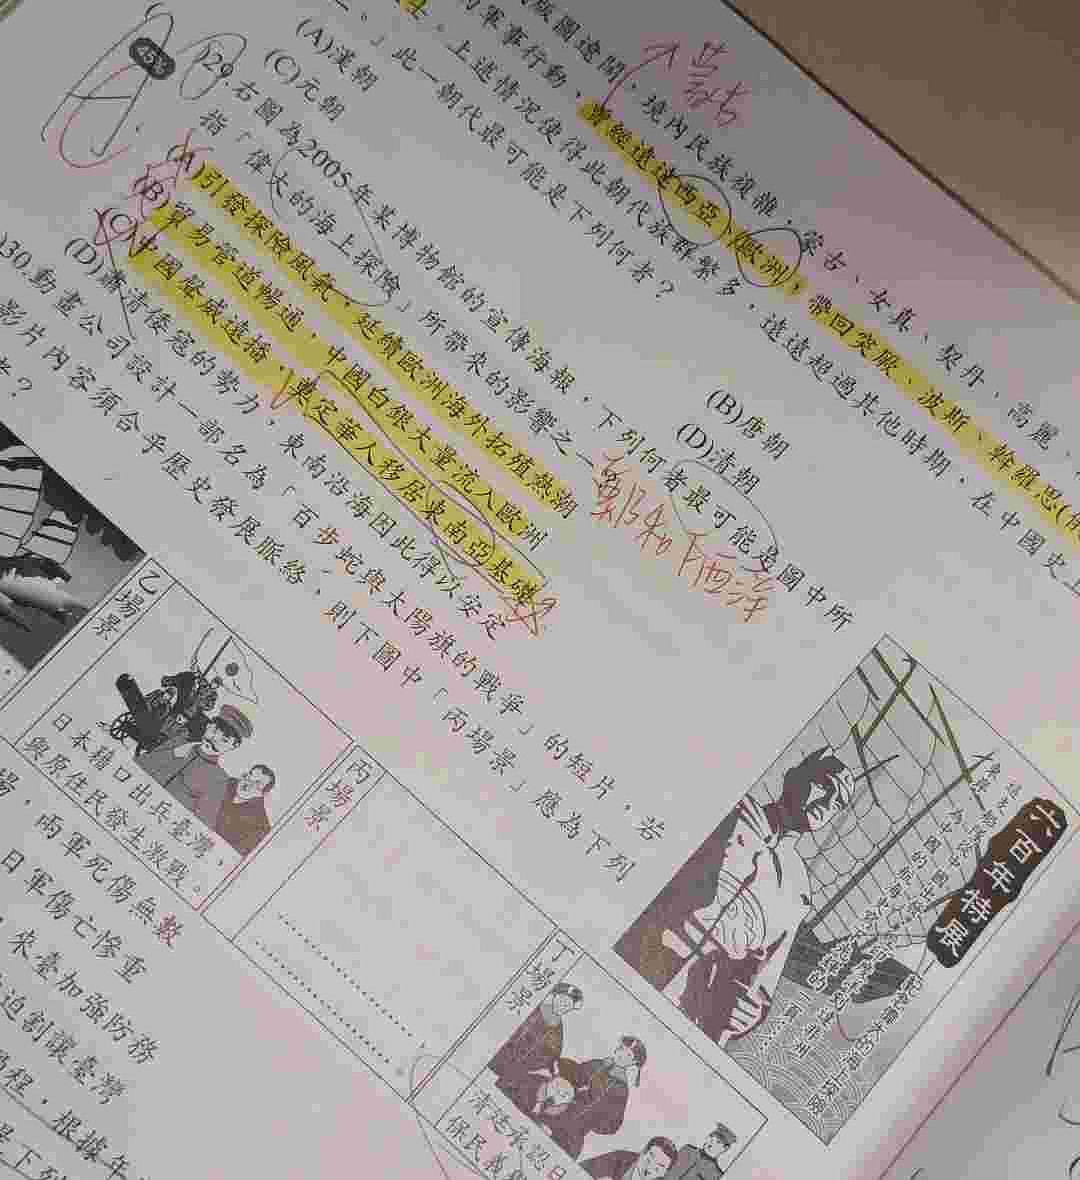 版圖遼闊，境內民族複雜，蒙古、女真、契丹、高麗、
的軍事行動，曾經遠達西亞、歐洲，帶回突厥、波斯、斡羅思(
上述情況使得此朝代族群繁多，遠遠超過其他時期，在中國史上
。」此一朝代最可能是下列何者？
(A)漢朝 (B)唐朝
(C)元朝 (D)清朝
蒙古
45%
29.右圖為2005年某博物館的宣傳海報，下列何者最可能是圖中所
指「偉大的海上探險」所帶來的影響之一
鄭和下西洋
(A)引發探險風氣，延續歐洲海外拓殖熱潮
(B)貿易管道暢通，中國白銀大量流入歐洲
(C)中國聲威遠播，奠定華人移居東南亞基礎
(D)肅清倭寇的勢力，東南沿海因此得以安定
六百年特展
30.動畫公司設計一部名為「百步蛇與太陽旗的戰爭」的短片，若
影片內容須合乎歷史發展脈絡，則下圖中「丙場景」應為下列
者？
乙場景
日本藉口出兵臺灣，
與原住民發生激戰。
丙場景
丁場景
清廷承認日
保民義
場，兩軍死傷無數
日軍傷亡慘重
來臺加強防務
迫割讓臺灣
過程，根據年
下列